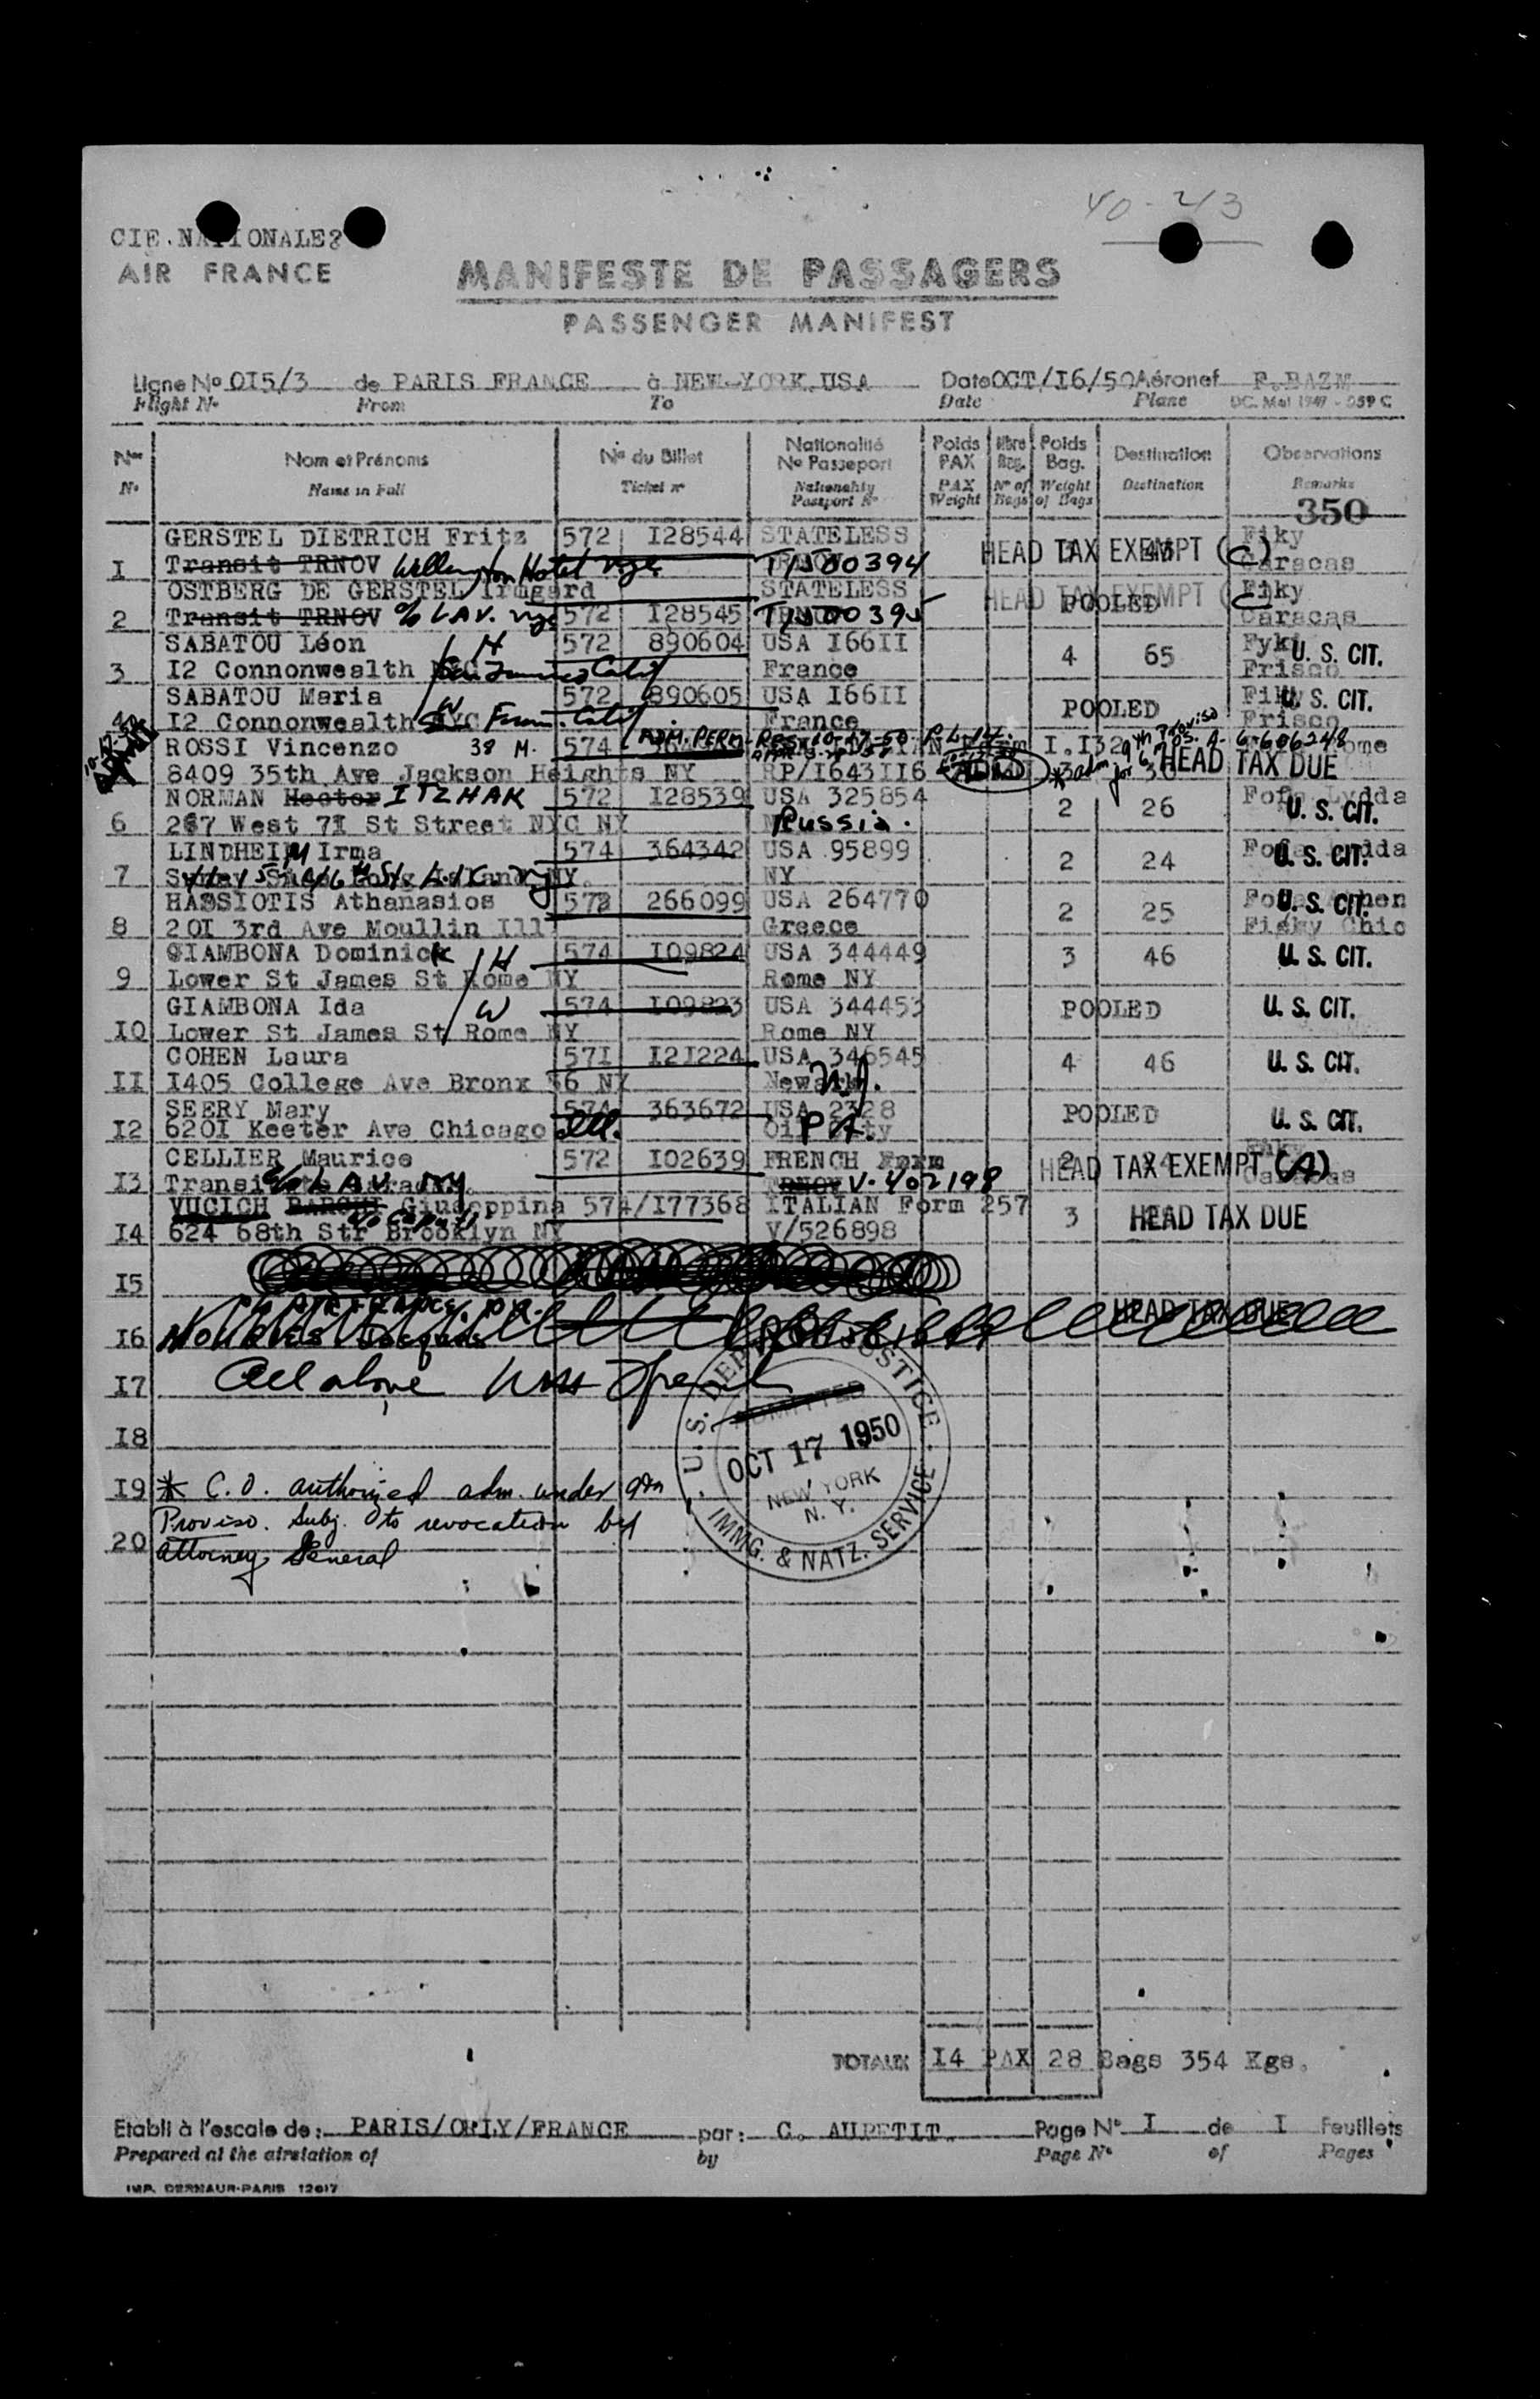 40-243
CIE.NATIONALE8
AIR FRANCE
MANIFESTE DE PASSAGERS
PASSENGER MANIFEST
Ligne No OI5/3 de PARIS FRANCE à NEW-YORK.USA Date OCT/I6/50 Aéronef F.BAZM
Flight No From To Date Plane UC. Mai 1949 - 059 C
Nos Nom et Prénoms No du Billet Nationalité No Passeport Poids PAX Nbre Bag. Poids Bag. Destination Observations
No Name in Full Ticket no Nationality Passport No PAX Weight No of Bags Weight of Bags Destination Remarks
350
GERSTEL DIETRICH Fritz 572 I28544 STATELESS Fiky
I Transit TRNOV Wellington Hotel nyc T/500394 HEAD TAX EXEMPT (C) Caracas
OSTBERG DE GERSTEL Irmgard STATELESS HEAD TAX EXEMPT (C) Fiky
2 Transit TRNOV c/o LAV. nyc 572 I28545 T/500395 POOLED Caracas
SABATOU Léon H 572 890604 USA I66II 4 65 Fyki U. S. CIT.
3 I2 Connonwealth San Francisco Calif France Frisco
SABATOU Maria W 572 890605 USA I66II POOLED Fiky U. S. CIT.
4 I2 Connonwealth NYC Fran. Calif France Frisco
ROSSI Vincenzo 38 M. 574 ADM. PERM. RES. 10-17-50 I.I32 9th Proviso
8409 35th Ave Jackson Heights NY RP/I643II6 HEAD TAX DUE
NORMAN Hector ITZHAK 572 I28539 USA 325854 2 26 Fofa Lydda U. S. CIT.
6 267 West 7I St Street NYC NY Russia.
LINDHEIM Irma 574 364342 USA 95899 2 24 U. S. CIT.
7 NY. NY
HASSIOTIS Athanasios 572 266099 USA 264770 2 25 U. S. CIT.
8 20I 3rd Ave Moullin Ill Greece Fisky Chic
GIAMBONA Dominick H 574 I09824 USA 344449 3 46 U. S. CIT.
9 Lower St James St Rome NY Rome NY
GIAMBONA Ida W 574 I09823 USA 344453 POOLED U. S. CIT.
I0 Lower St James St Rome NY Rome NY
COHEN Laura 57I I2I224 USA 346545 4 46 U. S. CIT.
II I405 College Ave Bronx 56 NY Newark N.J.
SEERY Mary 574 363672 USA 2328 POOLED U. S. CIT.
I2 620I Keeter Ave Chicago Ill. Oil City PA.
CELLIER Maurice 572 I02639 FRENCH Form 2 HEAD TAX EXEMPT (A)
I3 Transit c/o LAV NY TRNOV V-402198 Caracas
VUCICH Giuseppina 574/I77368 ITALIAN Form 257 3 HEAD TAX DUE
I4 624 68th Str Brooklyn NY V/526898
I5
HEAD TAX DUE
I6 Jacques
I7 All above
I8
U. S. DEPT. OF JUSTICE
ADMITTED
OCT 17 1950
NEW YORK
N. Y.
IMMG. & NATZ. SERVICE
I9 * C.O. authorized adm. under 9th
Proviso. Subj. to revocation by
20 Attorney General
TOTAUX I4 PAX 28 Bags 354 Kgs.
Etabli à l'escale de: PARIS/ORLY/FRANCE par: C. AUPETIT. Page No I de I Feuillets
Prepared at the airstation of by Page No of Pages
IMP. DERNAUR-PARIS 12617